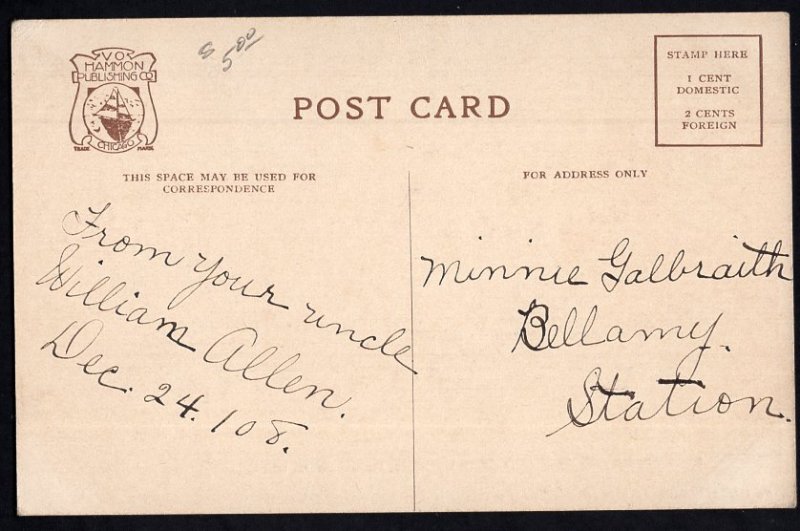 V.O.
HAMMON
PUBLISHING CO
CHICAGO
TRADE MARK
5.00
POST CARD
STAMP HERE
1 CENT
DOMESTIC
2 CENTS
FOREIGN
THIS SPACE MAY BE USED FOR
CORRESPONDENCE
FOR ADDRESS ONLY
From your uncle
William Allen.
Dec. 24. 108.
Minnie Galbraith
Bellamy.
Station.